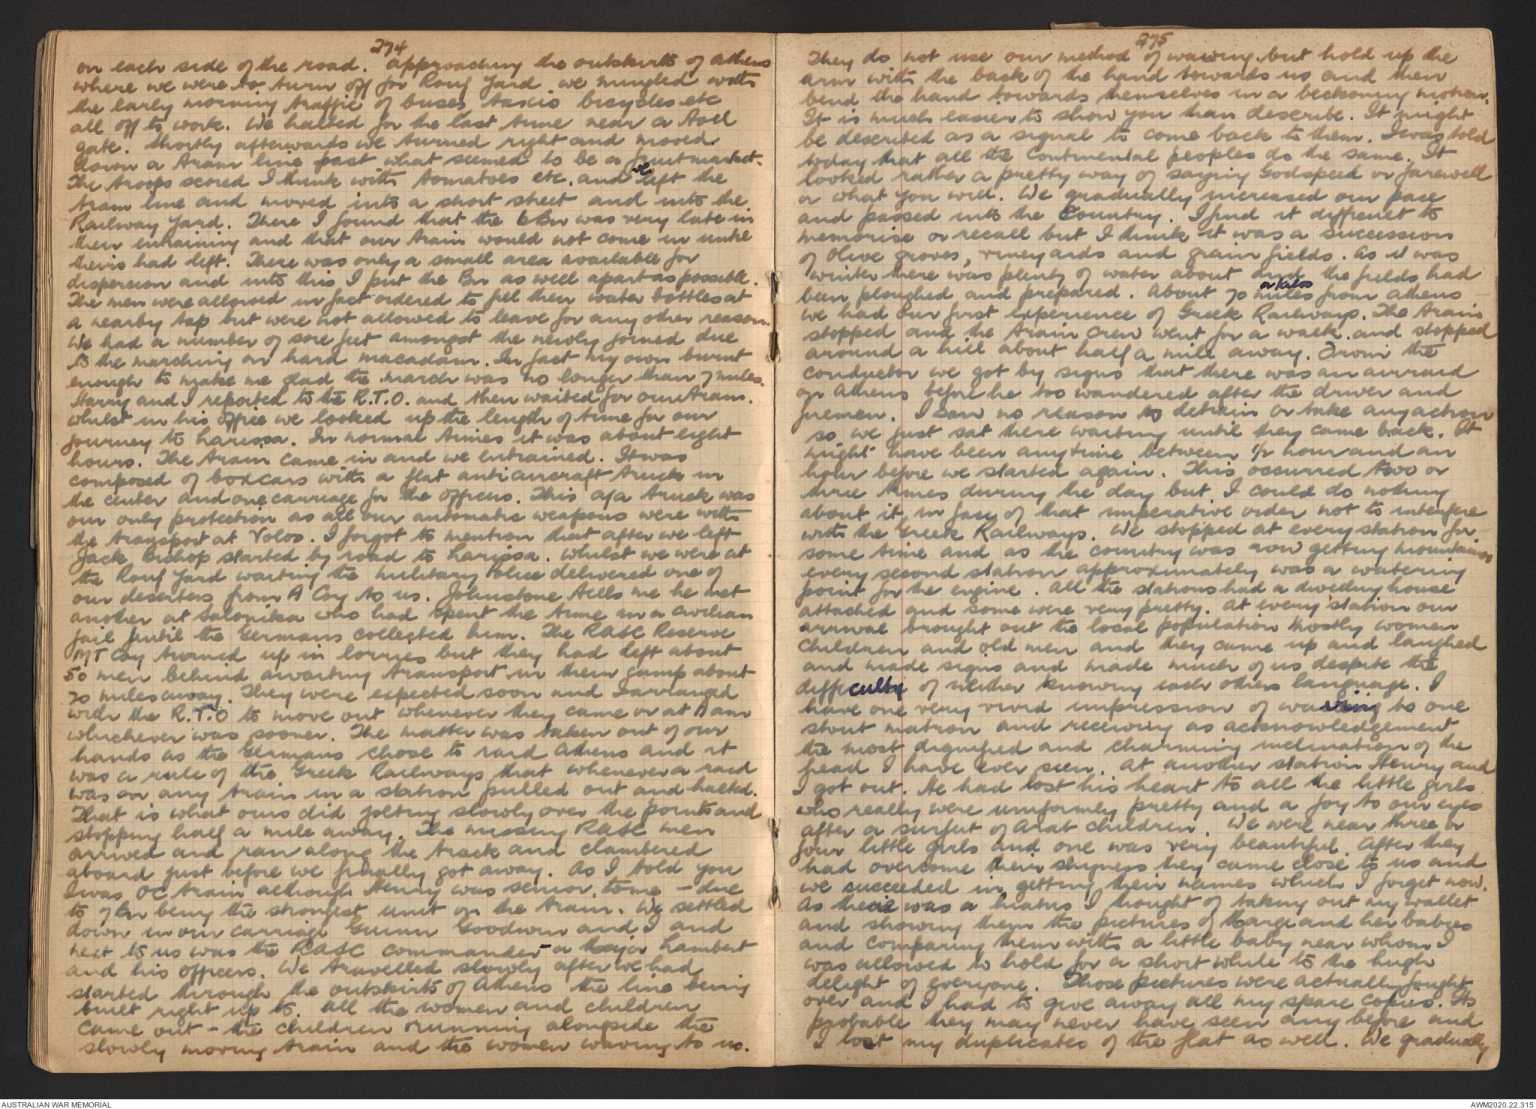 274
on each side of the road. Approaching the outskirts of Athens
where we were to turn off for Rouf Yard we mingled with
the early morning traffic of buses, taxis bicycles etc
all off to work. We halted for the last time near a toll
gate. Shortly afterwards we turned right and moved
down a tram line past what seemed to be a fruit market.
The troops scored I think with tomatoes etc. and we left the
tram line and moved into a short street and into the
Railway Yard. There I found that the Bn was very late in
their entraining and that our train would not come in until
theirs had left. There was only a small area available for
dispersion and into this I put the Bn as well apart as possible.
The men were allowed in fact ordered to fill their water bottles at
a nearby tap but were not allowed to leave for any other reason.
We had a number of sore feet amongst the newly joined due
to the marching on hard macadam. In fact my own burnt
enough to make me glad the march was no longer than 7 miles.
Harry and I reported to the R.T.O. and then waited for our train.
Whilst in his office we looked up the length of time for our
journey to Larissa. In normal times it was about eight
hours. The train came in and we entrained. It was
composed of boxcars with a flat anti aircraft truck in
the center and one carriage for the officers. This a/a truck was
our only protection as all our automatic weapons were with
the transport at Volos. I forgot to mention that after we left
Jack Bishop started by road to Larissa. Whilst we were at
the Rouf Yard waiting the Military Police delivered one of
our deserters from A Coy to us. Johnstone tells me he met
another at Salonika who had spent the time in a civilian
jail until the Germans collected him. The RASC Reserve
MT Coy turned up in lorries but they had left about
50 men behind awaiting transport in their camp about
20 miles away. They were expected soon and I arranged
with the R.T.O to move out whenever they came or at 11 am
whichever was sooner. The matter was taken out of our
hands as the Germans chose to raid Athens and it
was a rule of the Greek Railways that whenever a raid
was on any train in a station pulled out and halted.
That is what ours did jolting slowly over the points and
stopping half a mile away. The missing RASC men
arrived and ran along the track and clambered
aboard just before we finally got away. As I told you
I was OC train although Henry was senior to me - due
to 7 Bn being the strongest unit on the train. We settled
down in our carriage Guinn Goodwin and I and
next to us was the RASC commander - a Major Lambert
and his officers. We travelled slowly after we had
started through the outskirts of Athens the line being
built right up to. All the women and children
came out - the children running alongside the
slowly moving train and the women waving to us.
275
They do not use our method of waving but hold up the
arm with the back of the hand towards us and then
bend the hand towards themselves in a beckoning motion.
It is much easier to show you than describe. It might
be described as a signal to come back to them. I was told
today that all the Continental peoples do the same. It
looked rather a pretty way of saying Godspeed or farewell
or what you will. We gradually increased our pace
and passed into the Country. I find it difficult to
memorise or recall but I think it was a succession
of Olive groves, vineyards and grain fields. As it was
winter there was plenty of water about and the fields had
been ploughed and prepared. About 70 miles or kilos from Athens
we had our first experience of Greek Railways. The train
stopped and the train crew went for a walk and stopped
around a hill about half a mile away. From the
conductor we got by signs that there was an air raid
on Athens before he too wandered after the driver and
firemen. I saw no reason to detrain or take any action
so we just sat there waiting until they came back. It
might have been anytime between ½ hour and an
hour before we started again. This occurred two or
three times during the day but I could do nothing
about it in face of that imperative order not to interfere
with the Greek Railways. We stopped at every station for
some time and as the country was now getting mountainous
every second station approximately was a watering
point for the engine. All the stations had a dwelling house
attached and some were very pretty. At every station our
arrival brought out the local population mostly women
children and old men and they came up and laughed
and made signs and made much of us despite the
difficulty of neither knowing each others language. I
have one very vivid impression of waving to one
stout matron and receiving as acknowledgement
the most dignified and charming inclination of the
head I have ever seen. At another station Henry and
I got out. He had lost his heart to all the little girls
who really were uniformly pretty and a joy to our eyes
after a surfeit of Arab children. We were near three or
four little girls and one was very beautiful. After they
had overcome their shyness they came close to us and
we succeeded in getting their names which I forget now.
As there was a hiatus I thought of taking out my wallet
and showing them the pictures of Marge and her babies
and comparing them with a little baby near whom I
was allowed to hold for a short while to the high
delight of everyone. Those pictures were actually fought
over and I had to give away all my spare copies. Its
probable they may never have seen any before and
I lost my duplicates of the flat as well. We gradually
AUSTRALIAN WAR MEMORIAL
AWM2020.22.315